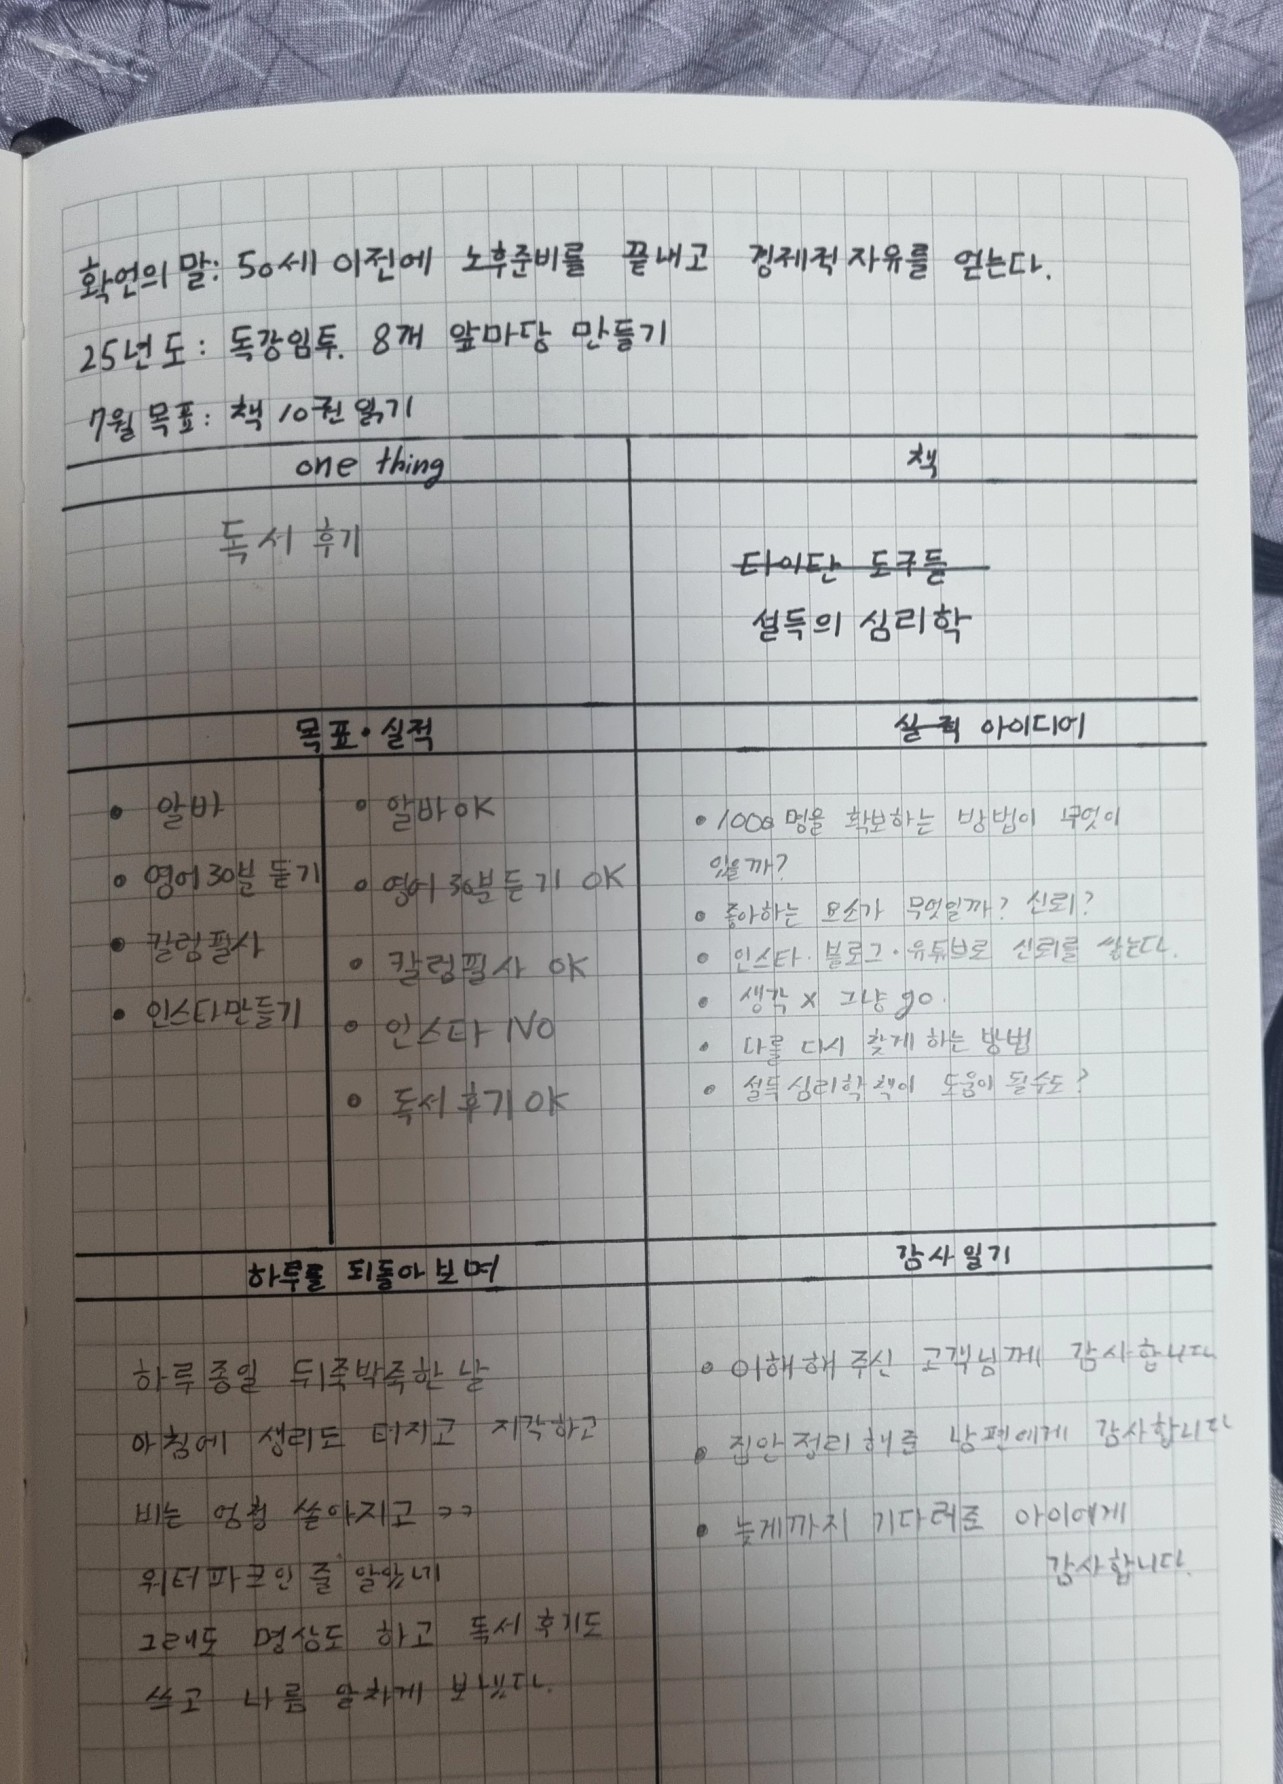 확언의 말: 50세 이전에 노후준비를 끝내고 경제적 자유를 얻는다.
25년도: 독강임투. 8개 앞마당 만들기
7월 목표: 책 10권 읽기
one thing
독서 후기
책
타이탄 도구들
설득의 심리학
목표·실적
• 알바
• 영어 30분 듣기
• 칼럼필사
• 인스타만들기
• 알바 OK
• 영어 30분 듣기 OK
• 칼럼필사 OK
• 인스타 NO
• 독서 후기 OK
실적 아이디어
• 1000명을 확보하는 방법이 무엇이
있을까?
• 좋아하는 요소가 무엇일까? 신뢰?
• 인스타·블로그·유튜브로 신뢰를 쌓는다.
• 생각 x 그냥 go.
• 나를 다시 찾게 하는 방법
• 설득심리학 책이 도움이 될수도?
하루를 되돌아보며
하루종일 뒤죽박죽한 날
아침에 생리도 터지고 지각하고
비는 엄청 쏟아지고 ㅋㅋ
워터파크인 줄 알았네
그래도 명상도 하고 독서후기도
쓰고 나름 알차게 보냈다.
감사일기
• 이해해 주신 고객님께 감사합니다
• 집안정리 해준 남편에게 감사합니다
• 늦게까지 기다려준 아이에게
감사합니다.